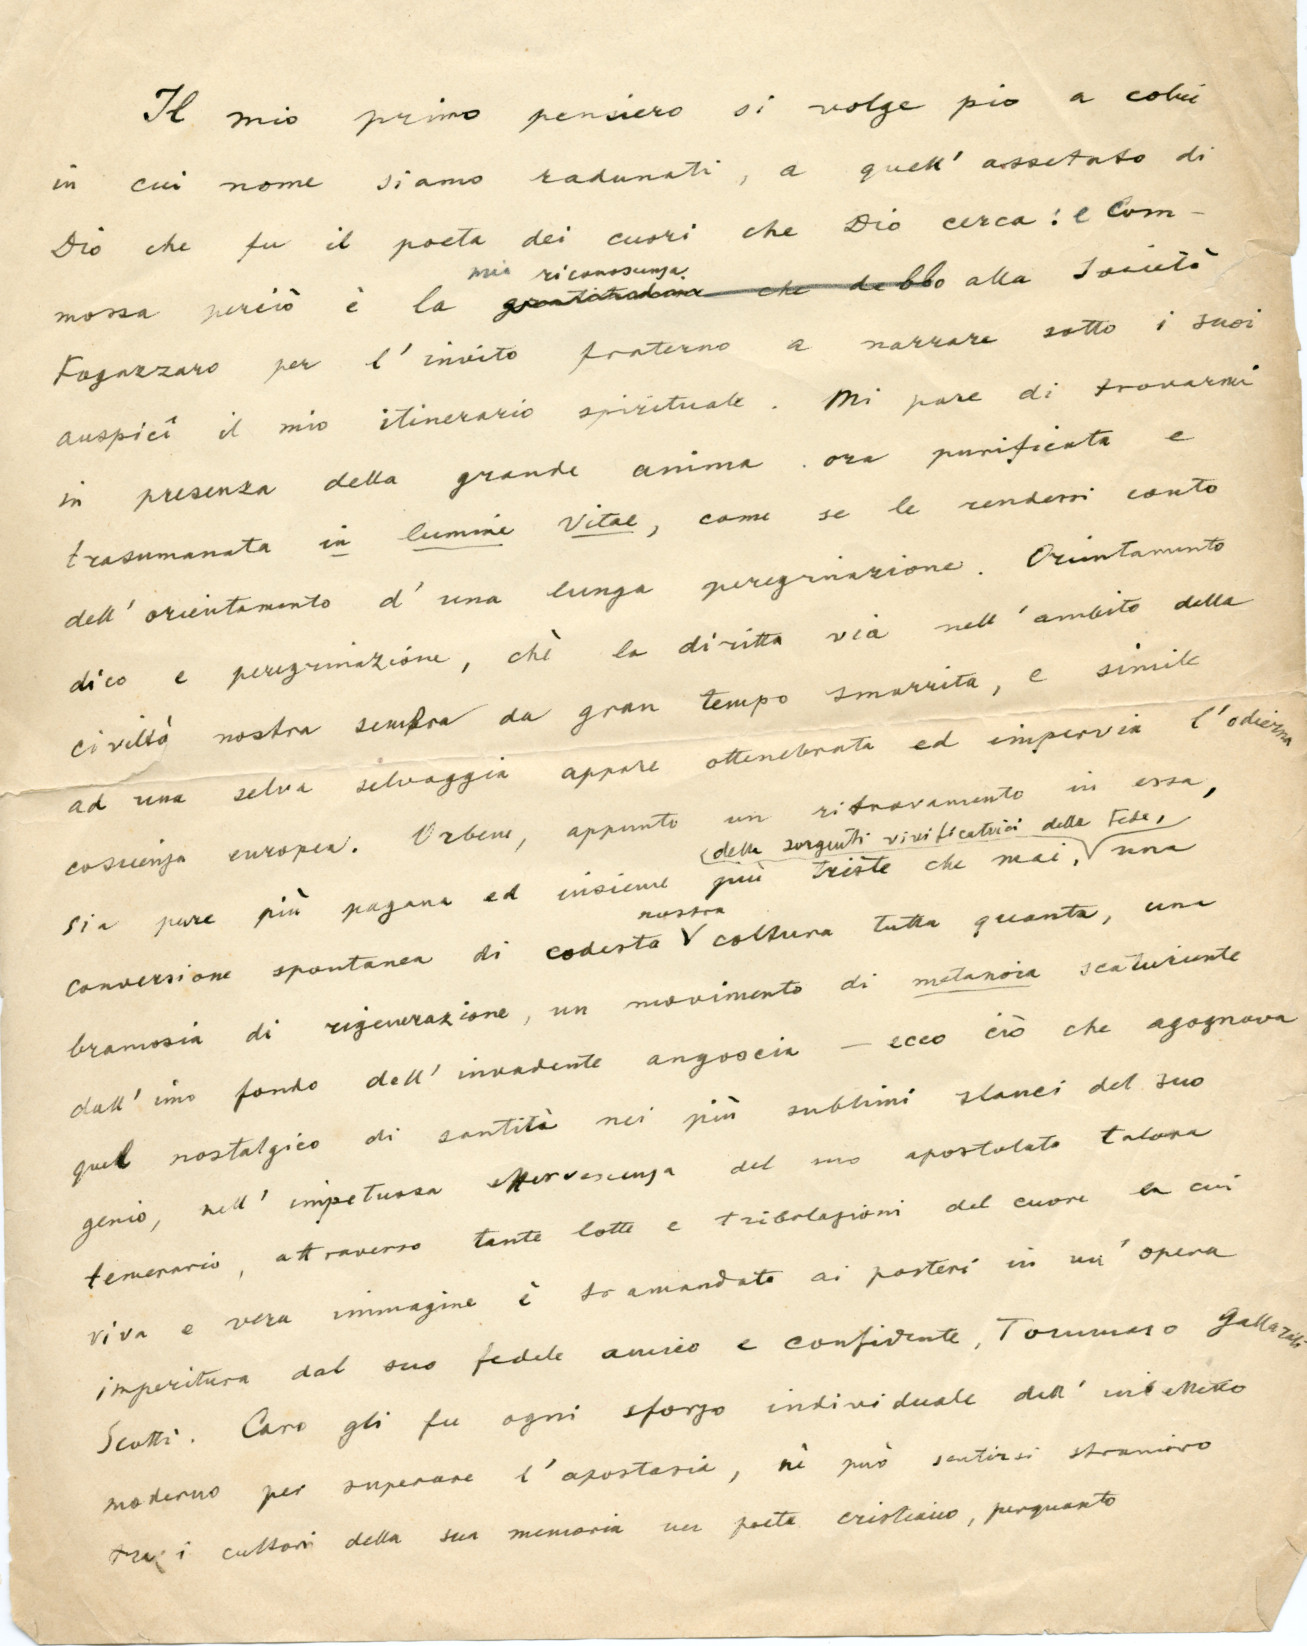 Il mio primo pensiero si volge pio a colui
in cui nome siamo radunati, a quell' assetato di
Dio che fu il poeta dei cuori che Dio cerca: e Com-
mia riconoscenza
mossa perciò è la gratitudine che debbo alla Società
Fogazzaro per l'invito fraterno a narrare sotto i suoi
auspicî il mio itinerario spirituale. Mi pare di trovarmi
in presenza della grande anima ora purificata e
trasumanata in lumine Vitae, come se le rendessi conto
dell' orientamento d' una lunga peregrinazione. Orientamento
dico e peregrinazione, chè la diritta via nell' ambito della
civiltà nostra sembra da gran tempo smarrita, e simile
ad una selva selvaggia appare ottenebrata ed impervia l'odierna
coscienza europea. Orbene, appunto un ritrovamento in essa,
(delle sorgenti vivificatrici della Fede,
sia pure più pagana ed insieme più triste che mai, una
nostra
conversione spontanea di codesta coltura tutta quanta, una
bramosia di rigenerazione, un movimento di metanoia scaturiente
dall' imo fondo dell' invadente angoscia – ecco ciò che agognava
quel nostalgico di santità nei più sublimi slanci del suo
genio, nell' impetuosa effervescenza del suo apostolato talora
temerario, attraverso tante lotte e tribolazioni del cuore la cui
viva e vera immagine è tramandata ai posteri in un' opera
imperitura dal suo fedele amico e confidente, Tommaso Gallarati
Scotti. Caro gli fu ogni sforzo individuale dell' intelletto
moderno per superare l'apostasia, nè può sentirsi straniero
tra i cultori della sua memoria un poeta cristiano, perquanto